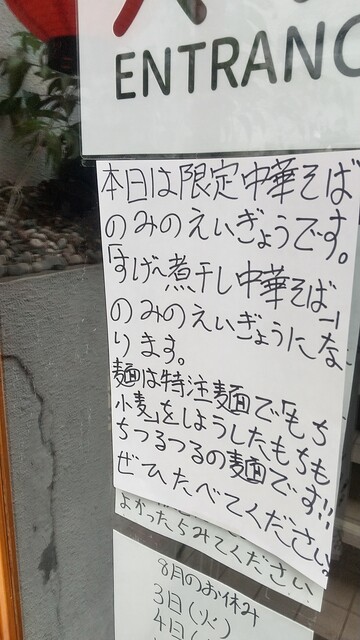 ENTRANC
本日は限定中華そば
のみのえいぎょうです。
「すげ〜煮干し中華そば」
のみのえいぎょうにな
ります。
麺は特注麺で「もち
小麦」をしようしたもちも
ちつるつるの麺です!!
ぜひたべてください。
よかったらみてください
8月のお休み
3日(火)
4日(